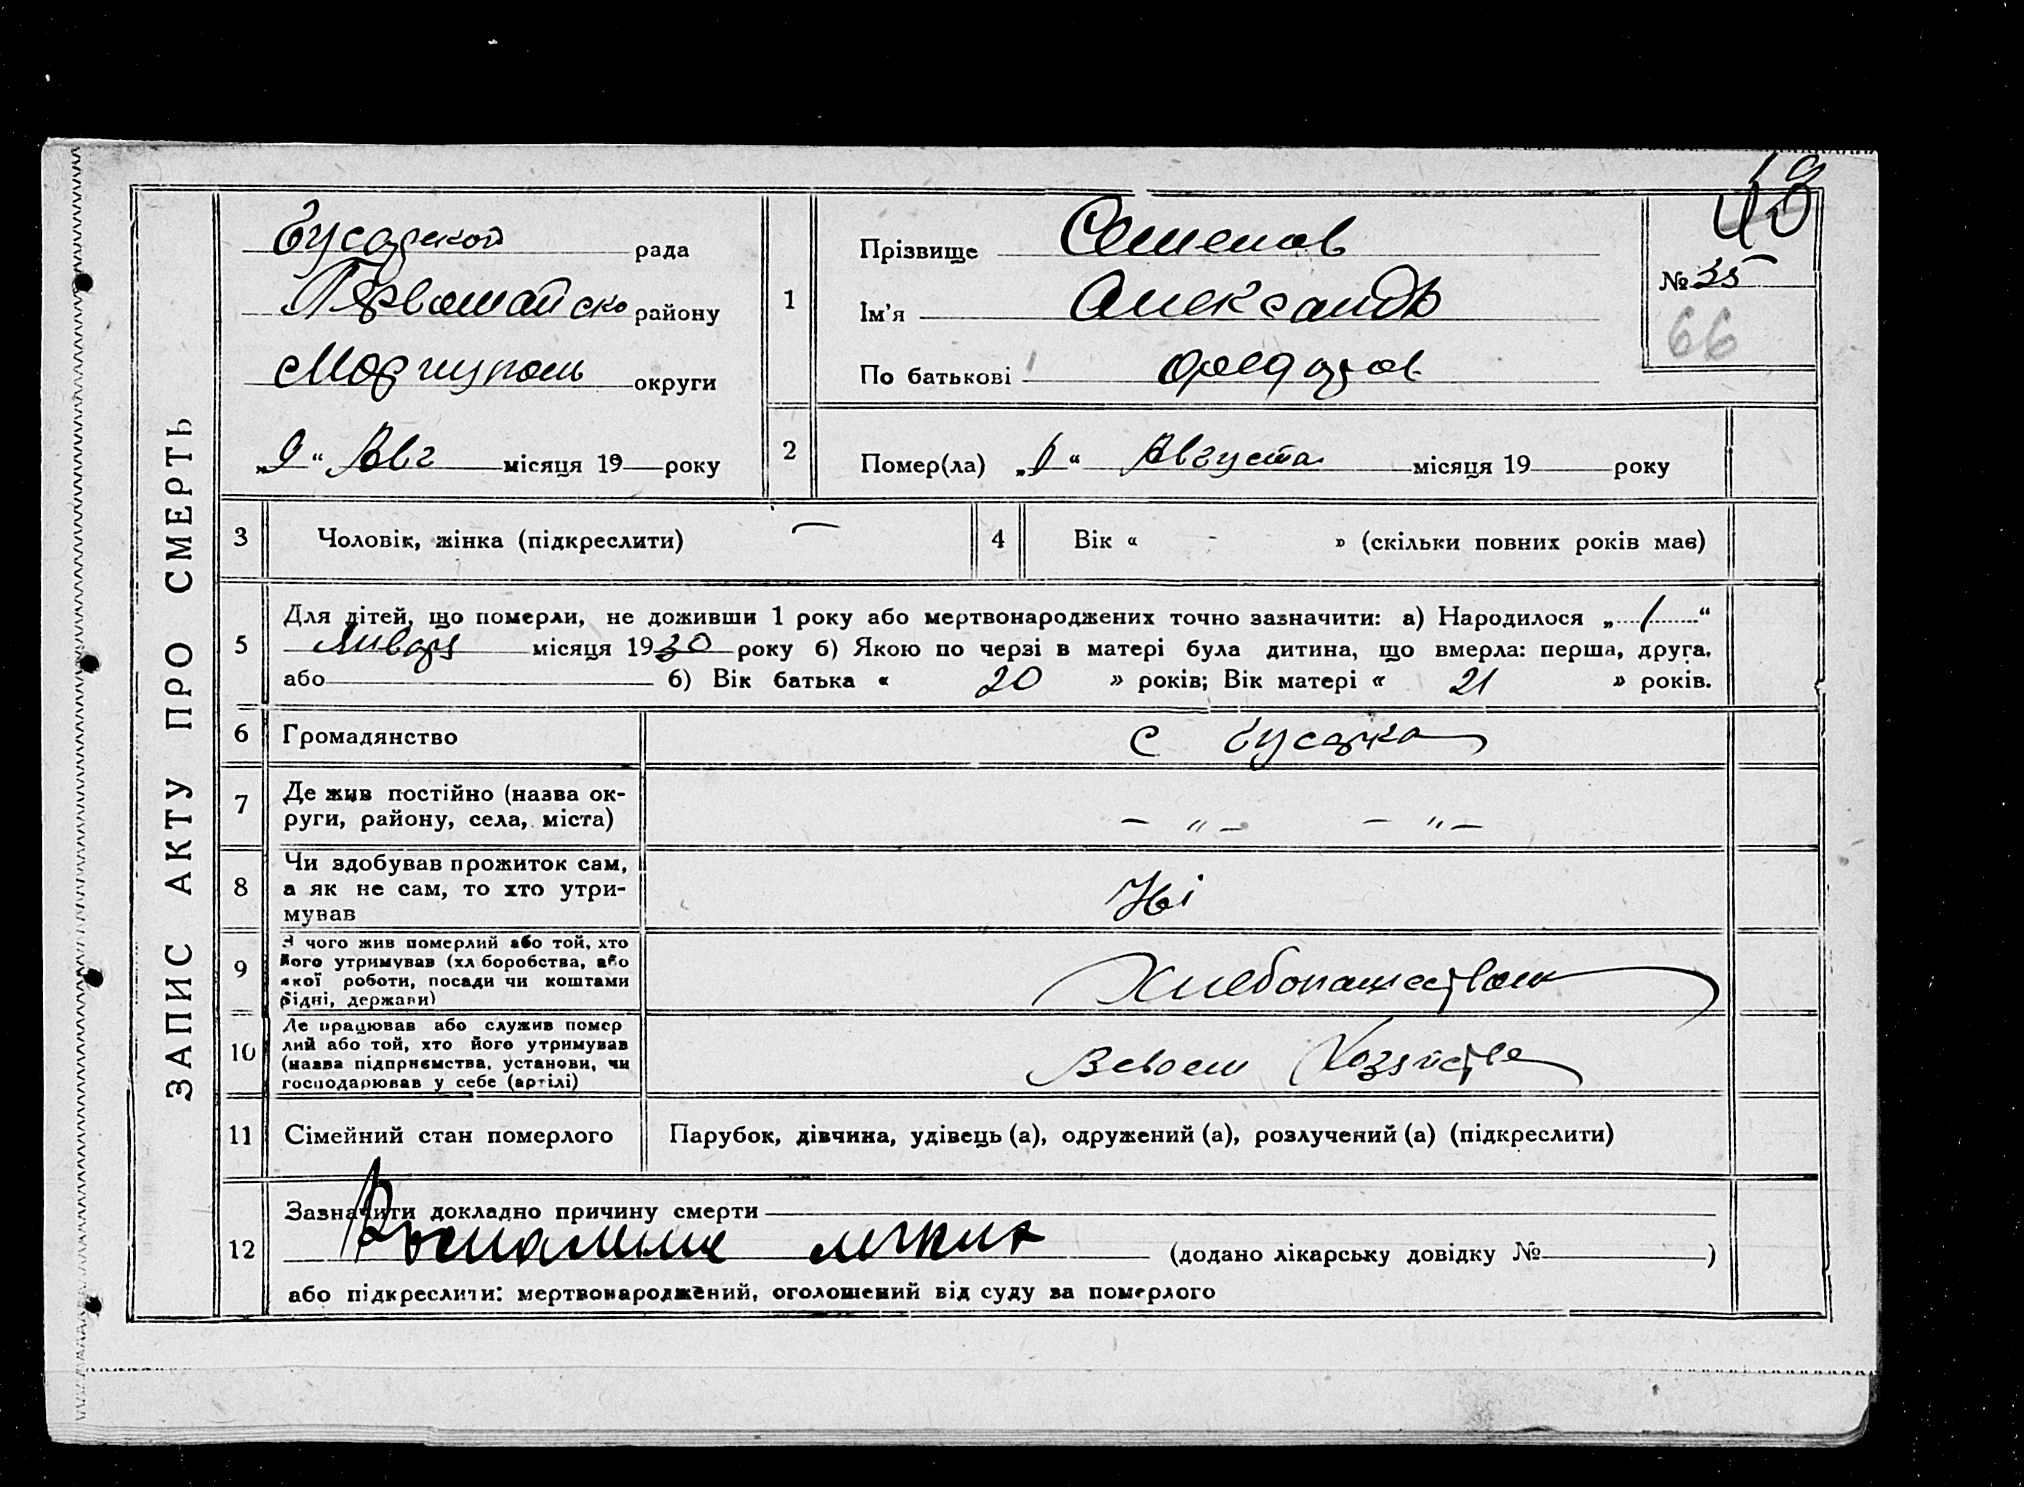 ЗАПИС АКТУ ПРО СМЕРТЬ
рада
району
Мариуполь округи
„9“ Авг місяця 19 року
1
Прізвище Семенов
Ім'я Александр
По батькові
№ 35
66
2
Помер(ла) „ “ Августа місяця 19 року
3
Чоловік, жінка (підкреслити) —
4
Вік « - » (скільки повних років має)
5
Для дітей, що померли, не доживши 1 року або мертвонароджених точно зазначити: а) Народилося „1“
Январ місяця 1930 року б) Якою по черзі в матері була дитина, що вмерла: перша, друга,
або 6) Вік батька « 20 » років; Вік матері « 21 » років.
6
Громадянство
с
7
Де жив постійно (назва ок-
руги, району, села, міста)
— „ — — „ —
8
Чи здобував прожиток сам,
а як не сам, то хто утри-
мував
Ні
9
З чого жив померлий або той, хто
його утримував (хл боробства, або
якої роботи, посади чи коштами
рідні, держави)
Хлебопашеством
10
Де працював або служив помер
лий або той, хто його утримував
(назва підприємства, установи, чи
господарював у себе (артілі)
Всвоем Хозяйстве
11
Сімейний стан померлого
Парубок, дівчина, удівець (а), одружений (а), розлучений (а) (підкреслити)
12
Зазначити докладно причину смерти
легких (додано лікарську довідку № )
або підкреслити: мертвонароджений, оголошений від суду за померлого